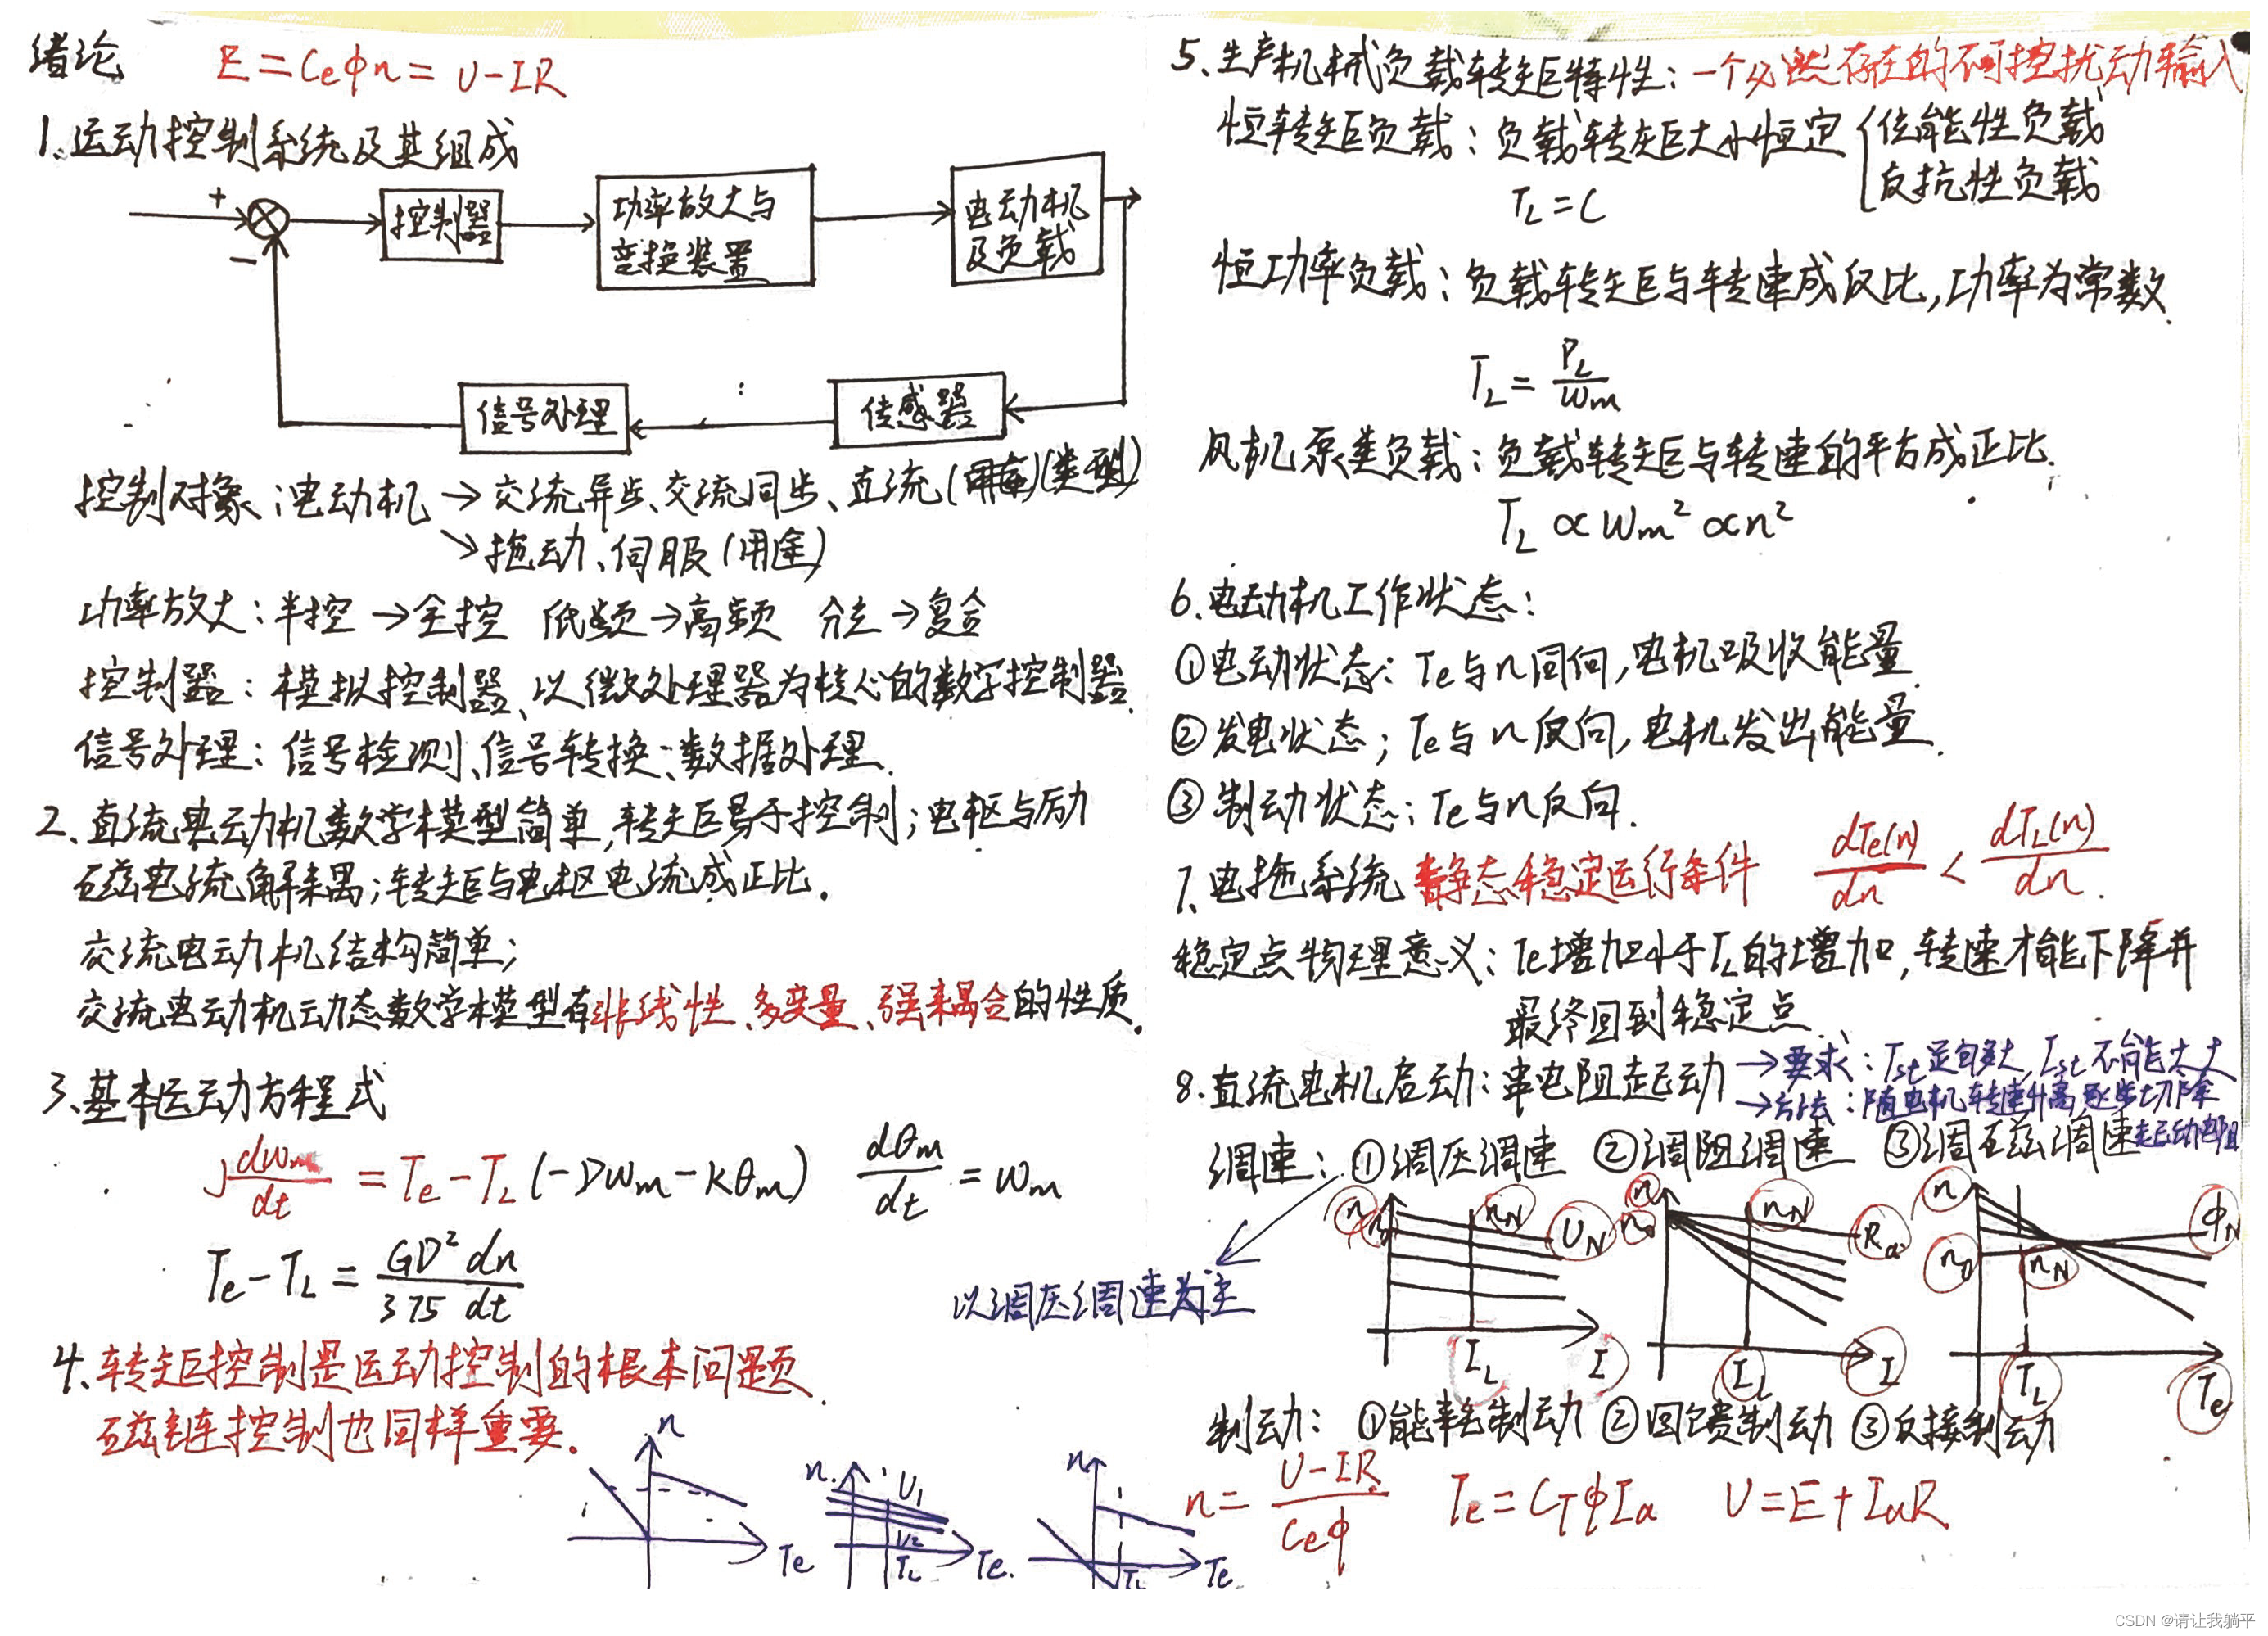 绪论 E=Ceφn=U-IR
1.运动控制系统及其组成
+
−
控制器
功率放大与
变换装置
电动机
及负载
信号处理
传感器
控制对象:电动机→交流异步、交流同步、直流(类型)
↘拖动、伺服(用途)
功率放大:半控→全控 低频→高频 分立→复合
控制器:模拟控制器、以微处理器为核心的数字控制器.
信号处理:信号检测、信号转换、数据处理.
2、直流电动机数学模型简单,转矩易于控制;电枢与励
磁电流解耦;转矩与电枢电流成正比.
交流电动机结构简单;
交流电动机动态数学模型有非线性、多变量、强耦合的性质.
3、基本运动方程式
J dωm/dt = Te-TL(-Dωm-Kθm) dθm/dt = ωm
Te-TL = GD²/375 dn/dt
4、转矩控制是运动控制的根本问题
磁链控制也同样重要.
n
Te
n
U1
U2
TL
Te
n
TL
Te
5、生产机械负载转矩特性:一个必然存在的不可控扰动输入
恒转矩负载:负载转矩大小恒定{位能性负载
反抗性负载
TL=C
恒功率负载:负载转矩与转速成反比,功率为常数.
TL=PL/ωm
风机泵类负载:负载转矩与转速的平方成正比.
TL∝ωm²∝n²
6.电动机工作状态:
①电动状态:Te与n同向,电机吸收能量.
②发电状态;Te与n反向,电机发出能量.
③制动状态:Te与n反向.
7、电拖系统静态稳定运行条件 dTe(n)/dn < dTL(n)/dn.
稳定点物理意义:Te增加小于TL的增加,转速才能下降并
最终回到稳定点
8.直流电机启动:串电阻起动→要求:Tst足够大,Ist不能太大
→方法:随电机转速升高逐步切除
起动电阻
调速:①调压调速 ②调阻调速 ③调磁调速
以调压调速为主
n
n0
nN
UN
IL
I
n
n0
nN
Ra
IL
I
n
n0
nN
φN
TL
Te
制动:①能耗制动 ②回馈制动 ③反接制动
n=U-IR/Ceφ Te=CTφIa U=E+IaR
CSDN @请让我躺平